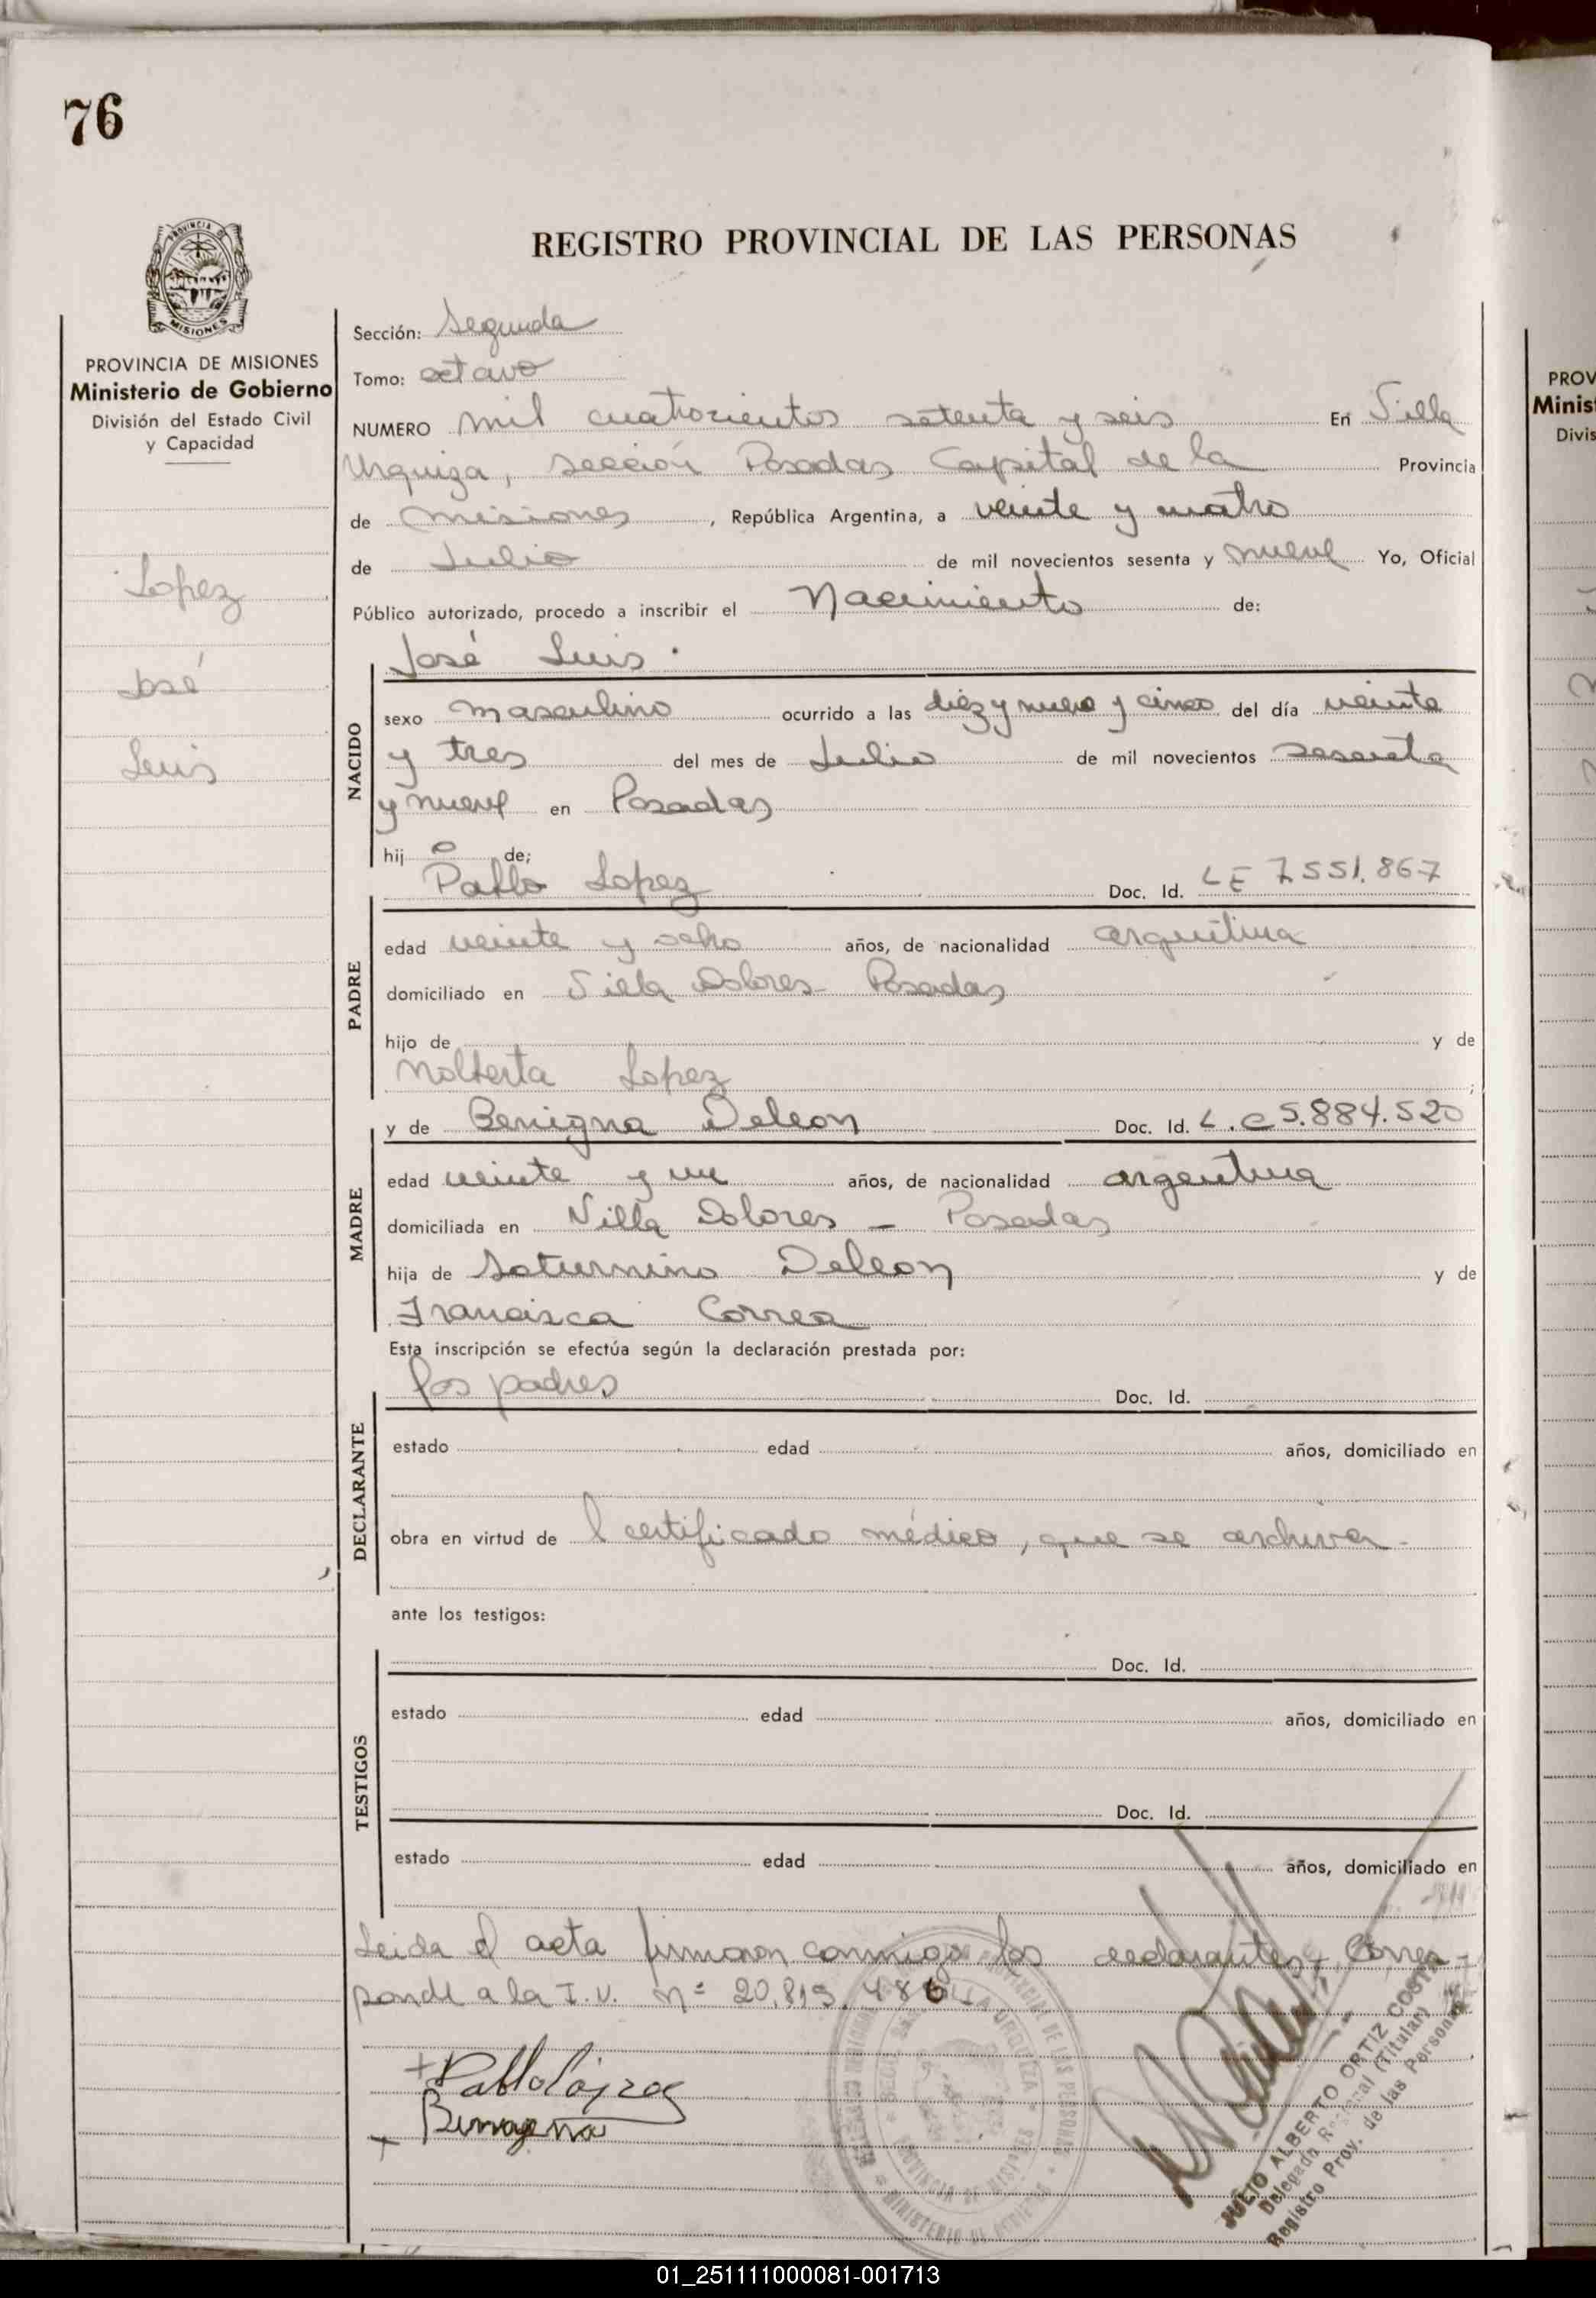 76
REGISTRO PROVINCIAL DE LAS PERSONAS
PROVINCIA DE MISIONES
Ministerio de Gobierno
División del Estado Civil
y Capacidad
Lopez
José
Luis
Sección: Segunda
Tomo: octavo
NUMERO mil cuatrocientos setenta y seis En Villa
Urquiza, sección Posadas Capital de la Provincia
de Misiones, República Argentina, a veinte y cuatro
de Julio de mil novecientos sesenta y nueve Yo, Oficial
Público autorizado, procedo a inscribir el Nacimiento de:
José Luis
NACIDO
sexo masculino ocurrido a las diez y nueve y cinco del día veinte
y tres del mes de Julio de mil novecientos sesenta
y nueve en Posadas
hij o de;
Pablo Lopez Doc. Id. LE 7.551.867
PADRE
edad veinte y ocho años, de nacionalidad argentina
domiciliado en Villa Dolores - Posadas
hijo de y de
Nolberta Lopez ;
y de Benigna Deleon Doc. Id. L.C 5.884.520
MADRE
edad veinte y un años, de nacionalidad argentina
domiciliada en Villa Dolores - Posadas
hija de Saturnino Deleon y de
Francisca Correa
Esta inscripción se efectúa según la declaración prestada por:
los padres Doc. Id.
DECLARANTE
estado edad años, domiciliado en
obra en virtud de l certificado médico, que se archiva.
ante los testigos:
Doc. Id.
TESTIGOS
estado edad años, domiciliado en
Doc. Id.
estado edad años, domiciliado en
Leida el acta firmaron conmigo los declarantes, Corres-
ponde a la I.U. nº 20.819.486
Pablo López
JULIO ALBERTO ORTIZ COSTA
Delegado (Titular)
Registro Prov. de las Personas
01_251111000081-001713